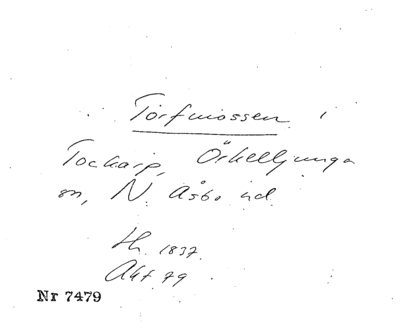 Torfmossen
Tockarp, Örkelljunga
sn, N. Åsbo hd.
th. 1837.
Akt 79
Nr 7479